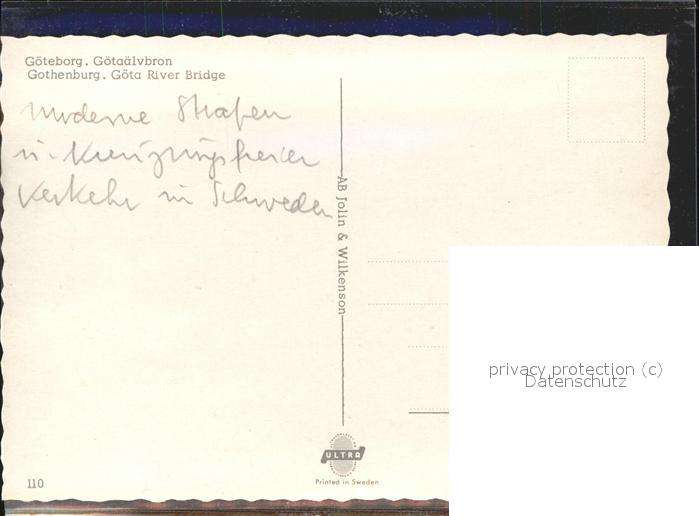 Göteborg. Götaälvbron
Gothenburg. Göta River Bridge
Moderne Straßen
u. Kreuzungsfreier
Verkehr in Schweden
AB Jolin & Wilkenson
privacy protection (c)
Datenschutz
ULTRA
Printed in Sweden
110